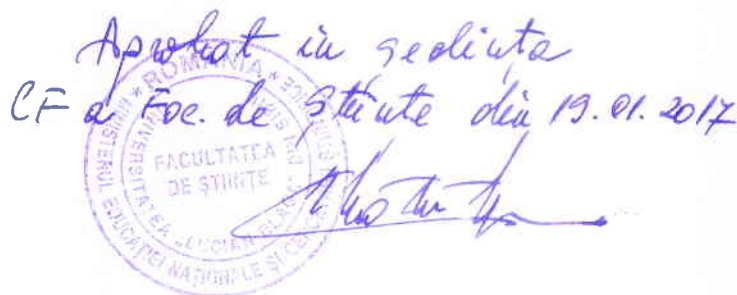 Aprobat în ședința
CF a Fac. de Științe din 19.01.2017
* ROMÂNIA *
MINISTERUL EDUCAȚIEI NAȚIONALE ȘI
UNIVERSITATEA „LUCIAN BLAGA”
FACULTATEA
DE ȘTIINȚE